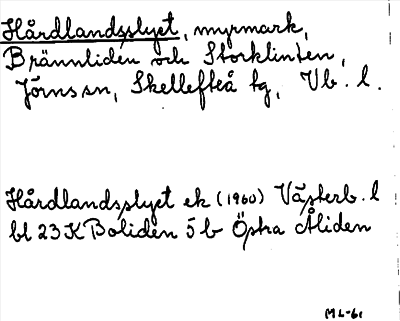 Hårdlandsslyet, myrmark,
Brännliden och Storklinten,
Jörns sn, Skellefteå tg, Vb. l.
Hårdlandsslyet ek (1960) Västerb. l
bl 23K Boliden 5b Östra Åliden
ML-61